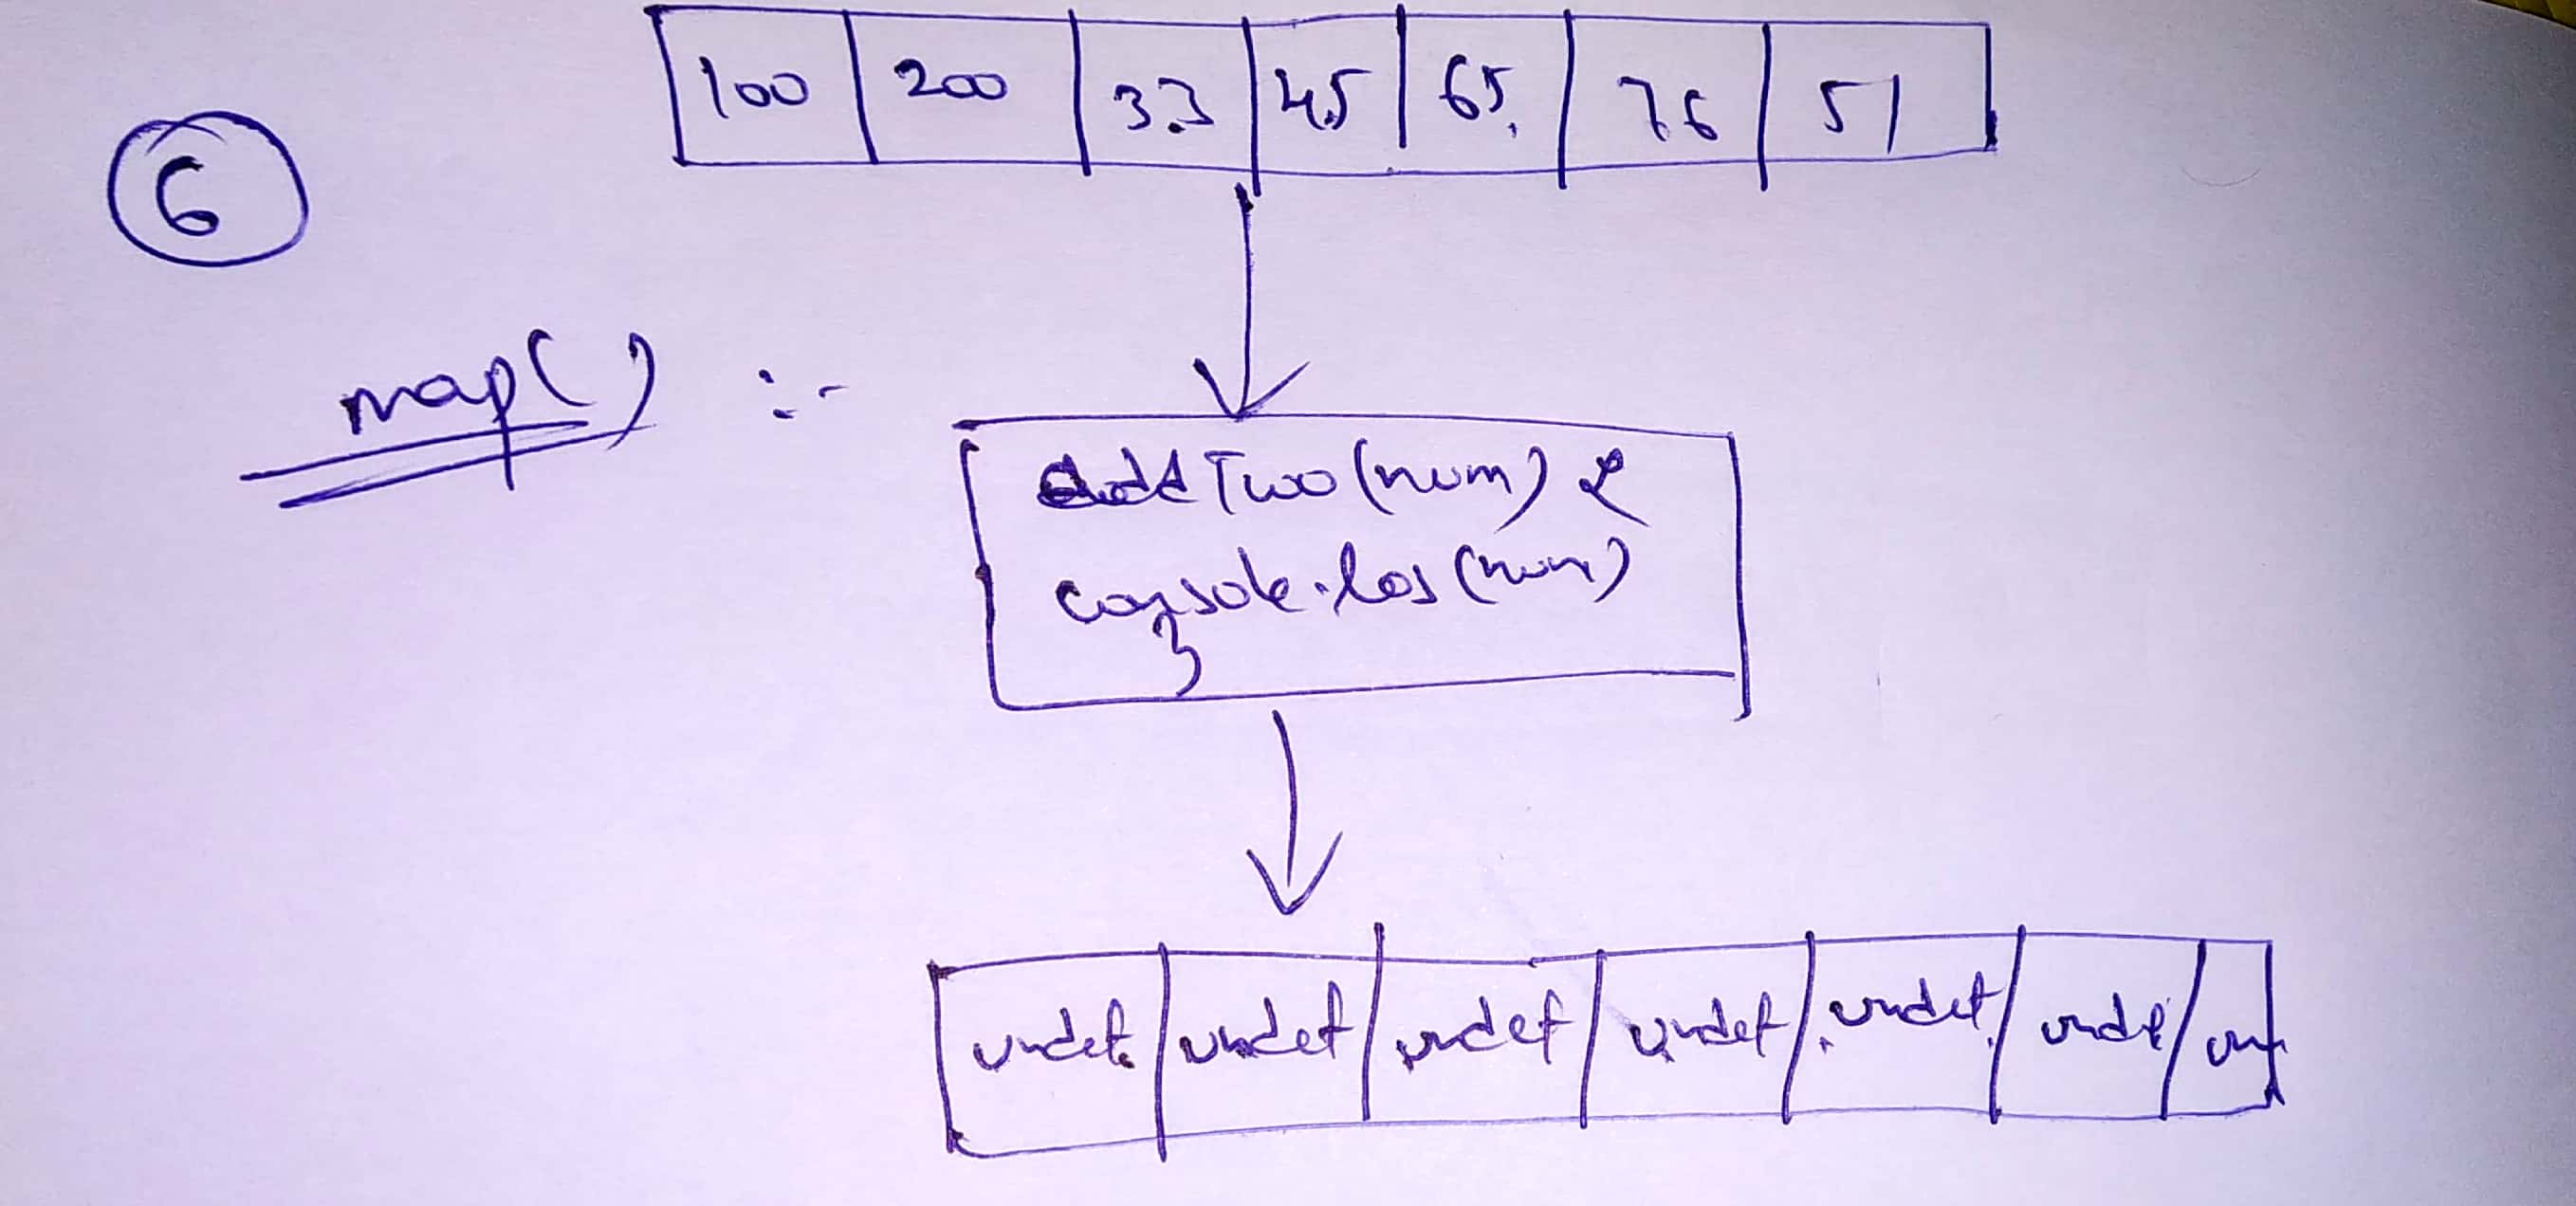 100 200 3.3 4.5 65. 7.6 51
6
map() :-
addTwo(num) {
console.log(num)
}
undef. undef undef undef undef undef un